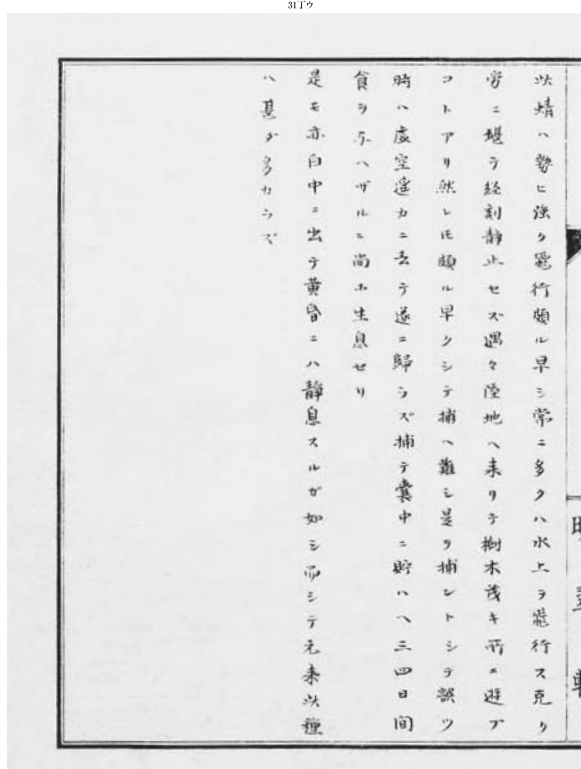 31丁ウ
以蜻ハ勢ヒ強ク飛行頗ル早シ常ニ多クハ水上ヲ飛行ス克ク
労ニ堪ヲ経刻静止セズ遇々陸地ヘ来リテ樹木茂キ所ニ遊ブ
コトアリ然レ𪜈頗ル早クシテ捕ヘ難シ是ヲ捕ントシテ誤ツ
時ハ虚空遥カニ去テ遂ニ歸ラズ捕テ嚢中ニ貯ハヘ三四日間
食ヲ与ハザルニ尚ホ生息セリ
是モ亦白中ニ出テ黄昏ニハ静息スルガ如シ而シテ元来以種
ハ甚ダ多カラズ